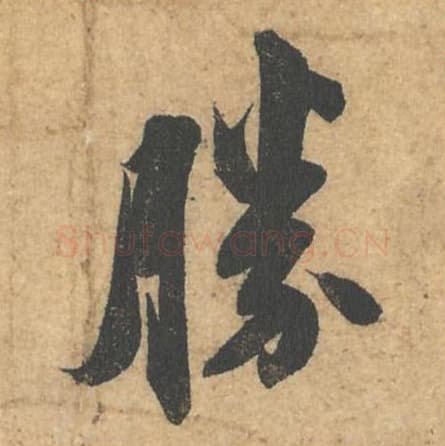 勝
Shufawang.CN